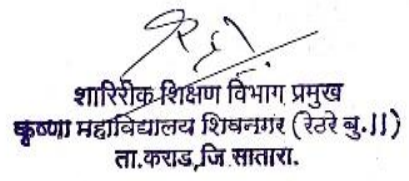 शारिरीक शिक्षण विभाग प्रमुख
कृष्णा महाविद्यालय शिवनगर (रेठरे बु.।।)
ता.कराड,जि.सातारा.